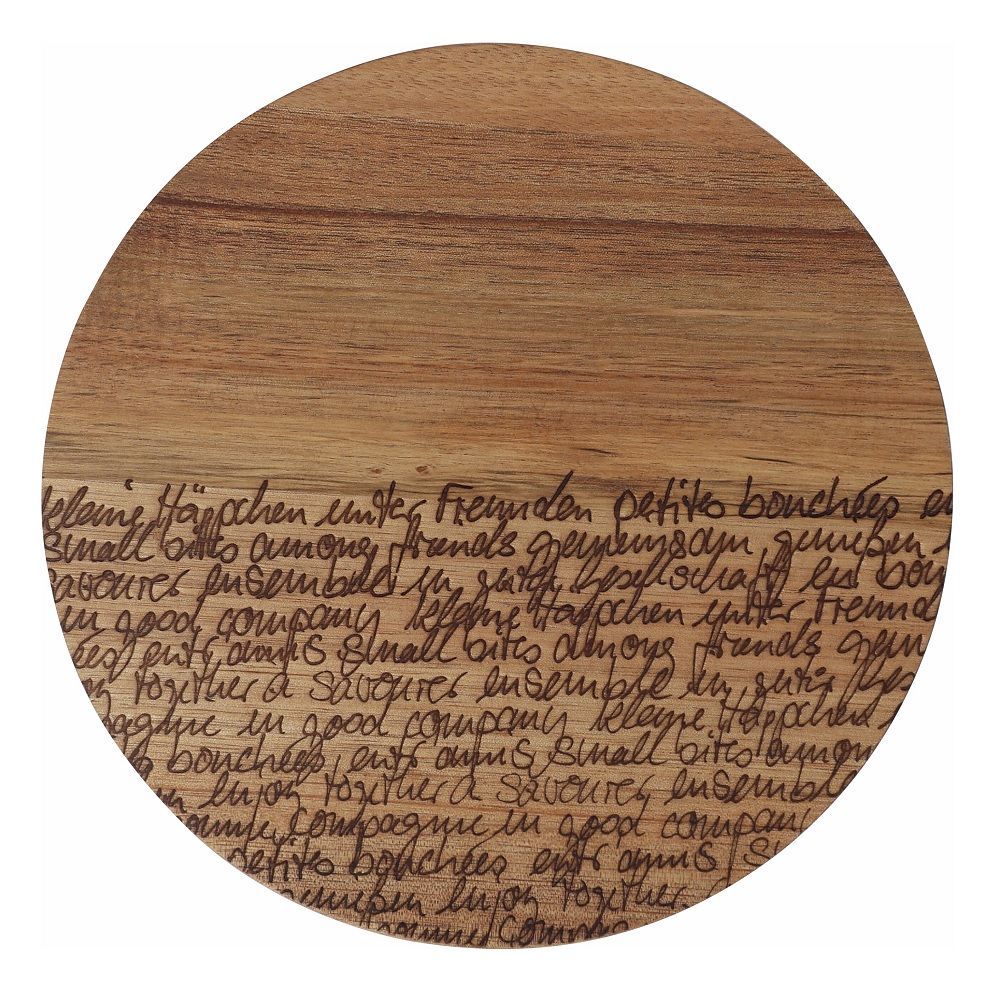 kleine Häppchen unter Freunden petites bouchées en
small bites among friends gemeinsam genießen
savourer ensemble in guter Gesellschaft en bon
in good company kleine Häppchen unter Freund
ées entr amis small bites among friends gem
enjoy together à savourer ensemble in guter Ges
pagnie in good company kleine Häppchen
bouchées entr amis small bites among
enjoy together à savourer ensemble
bonne compagnie in good company
petites bouchées entr amis s
genießen enjoy together
bonne compa